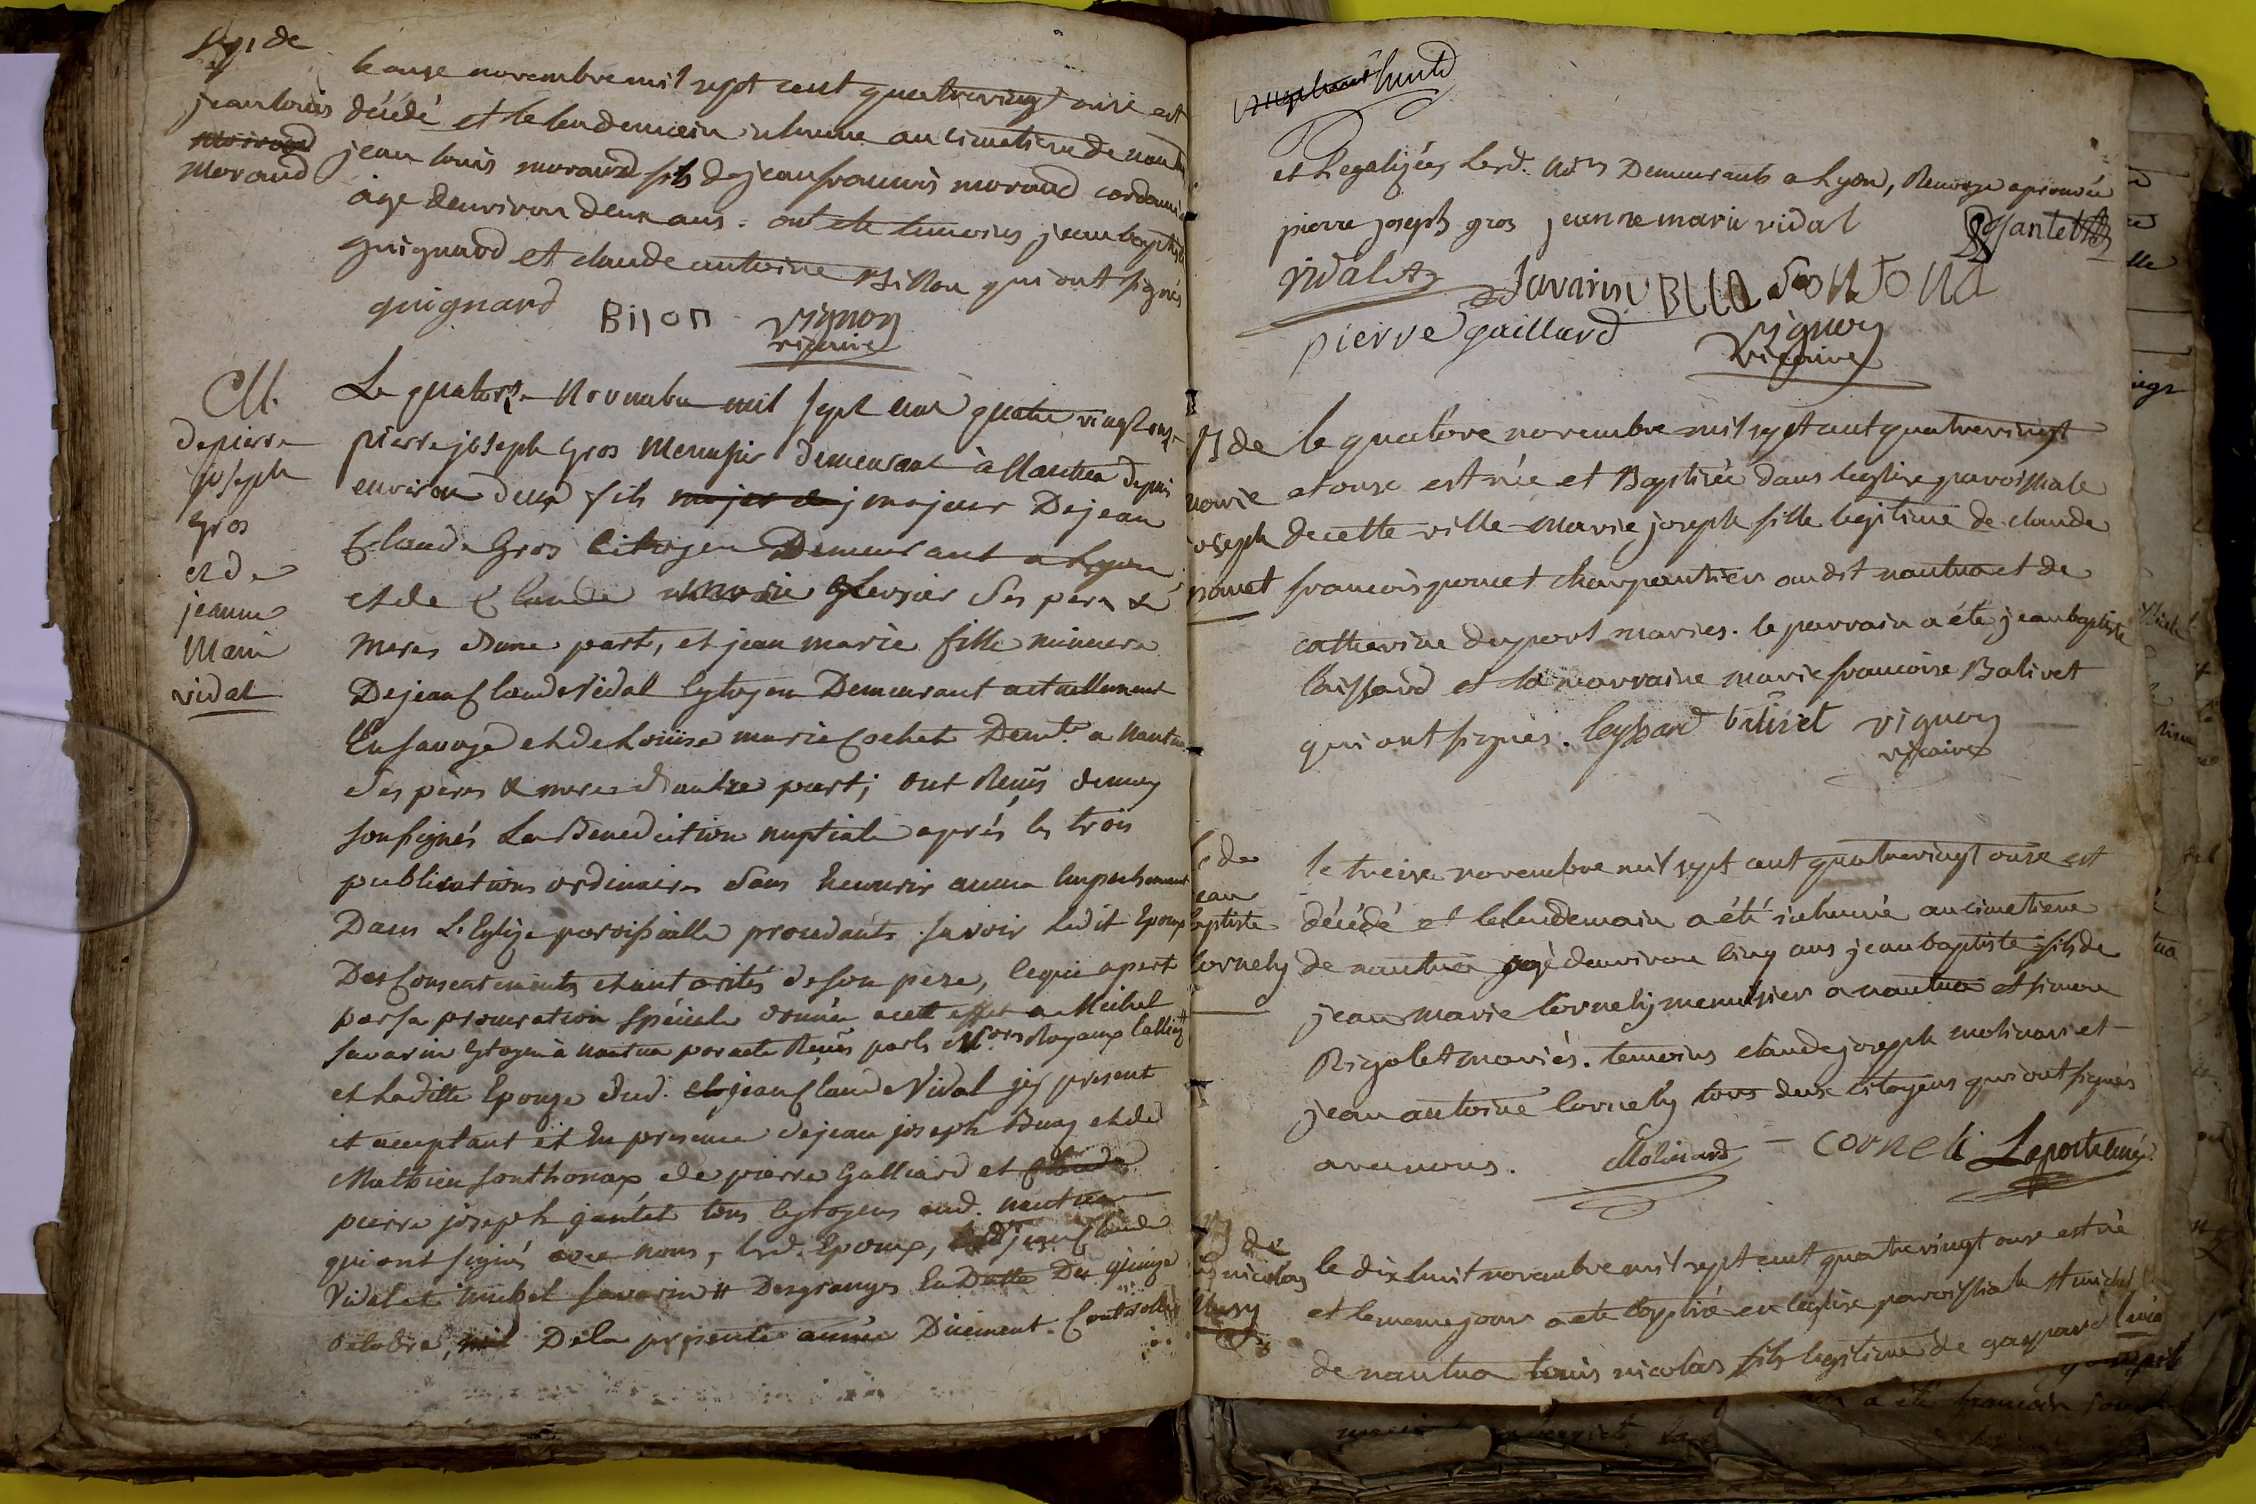 le onze novembre mil sept cent quatrevingt onze est
jean louis
décédé et le lendemain inhumé au cimetiere de nantua
morand
jean louis morand fils de jean francois morand cordonnier
âgé denviron deux ans. ont ete temoins jean baptiste
guignard et claude antoine Billon qui ont signés
guignard Bijon vignon
vicaire
M.
de pierre
joseph
gros
et de
jeanne
Marie
vidal
Le quatorze Novembre mil sept cent quatre vingt onze
pierre joseph Gros Menusier demeurant à Nantua depuis
environ deux fils majeur De jean
Claude Gros Citoyen Demeurant a Lyon
et de Claude marie ses pere &
meres d'une part, et jean marie fille mineure
De jean Claude Vidal Cytoyen Demeurant actuellement
En savoye et de Loüise marie Cochet Demte. a Nantua
ses pères & meres d'autre part; ont Reçüs de moy
soussignés La Benediction nuptiale aprés les trois
publications ordinaires sans encourir aucun Empechement
Dans L'Eglize paroissialle procedants savoir Ledit Epoux
Des Consentements et autorités de son pere, ce qui apert
par sa procuration spéciale donnée a cet effet a Michel
savarin Cytoyen à nantua par acte Reçüs par les
et Laditte Epouze dud. jean Claude Vidal icy present
et acceptant et En presence de jean joseph Buay et de
Mathieu Sonthonax de pierre Galliard et
pierre joseph jantet tous Cytoyens aud. nantua
qui ont signés avec nous, led. Epoux, jean Claude
Vidal et michel savarin # Desgranges En Datte Du quinze
octobre, De la presente année Düement Controllée
et Legalizées Demeurants a Lyon, Renvoye aprouvée
pierre joseph gros jeanne marie vidal Jantet
vidal Savarin
pierre gaillard vignon
vicaire
B de
marie
joseph
poncet
le quatorze novembre mil sept cent quatrevingt
et onze est née et Baptisée dans leglise paroissiale
de cette ville marie joseph fille legitime de claude
francois poncet charpentier audit nantua et de
catherine duport mariés. le parrain a été jean baptiste
laissard et la marraine marie francoise Balivet
qui ont signés. leyssard balivet vignon
vicaire
S de
jean
baptiste
Cornely
le treize novembre mil sept cent quatrevingt onze est
décédé et le lendemain a été inhumé au cimetiere
de nantua agé denviron cinq ans jean baptiste fils de
jean marie Cornely menuisier a nantua et simone
Rigolet mariés. temoins claude joseph molinard et
jean antoine Cornely tous deux citoyens qui ont signés
avec nous. Molinard - corneli
B de
louis nicolas
le dix huit novembre mil sept cent quatrevingt onze est né
et le meme jour a ete baptisé en leglise paroissiale st michel
de nantua louis nicolas fils legitime de gaspard